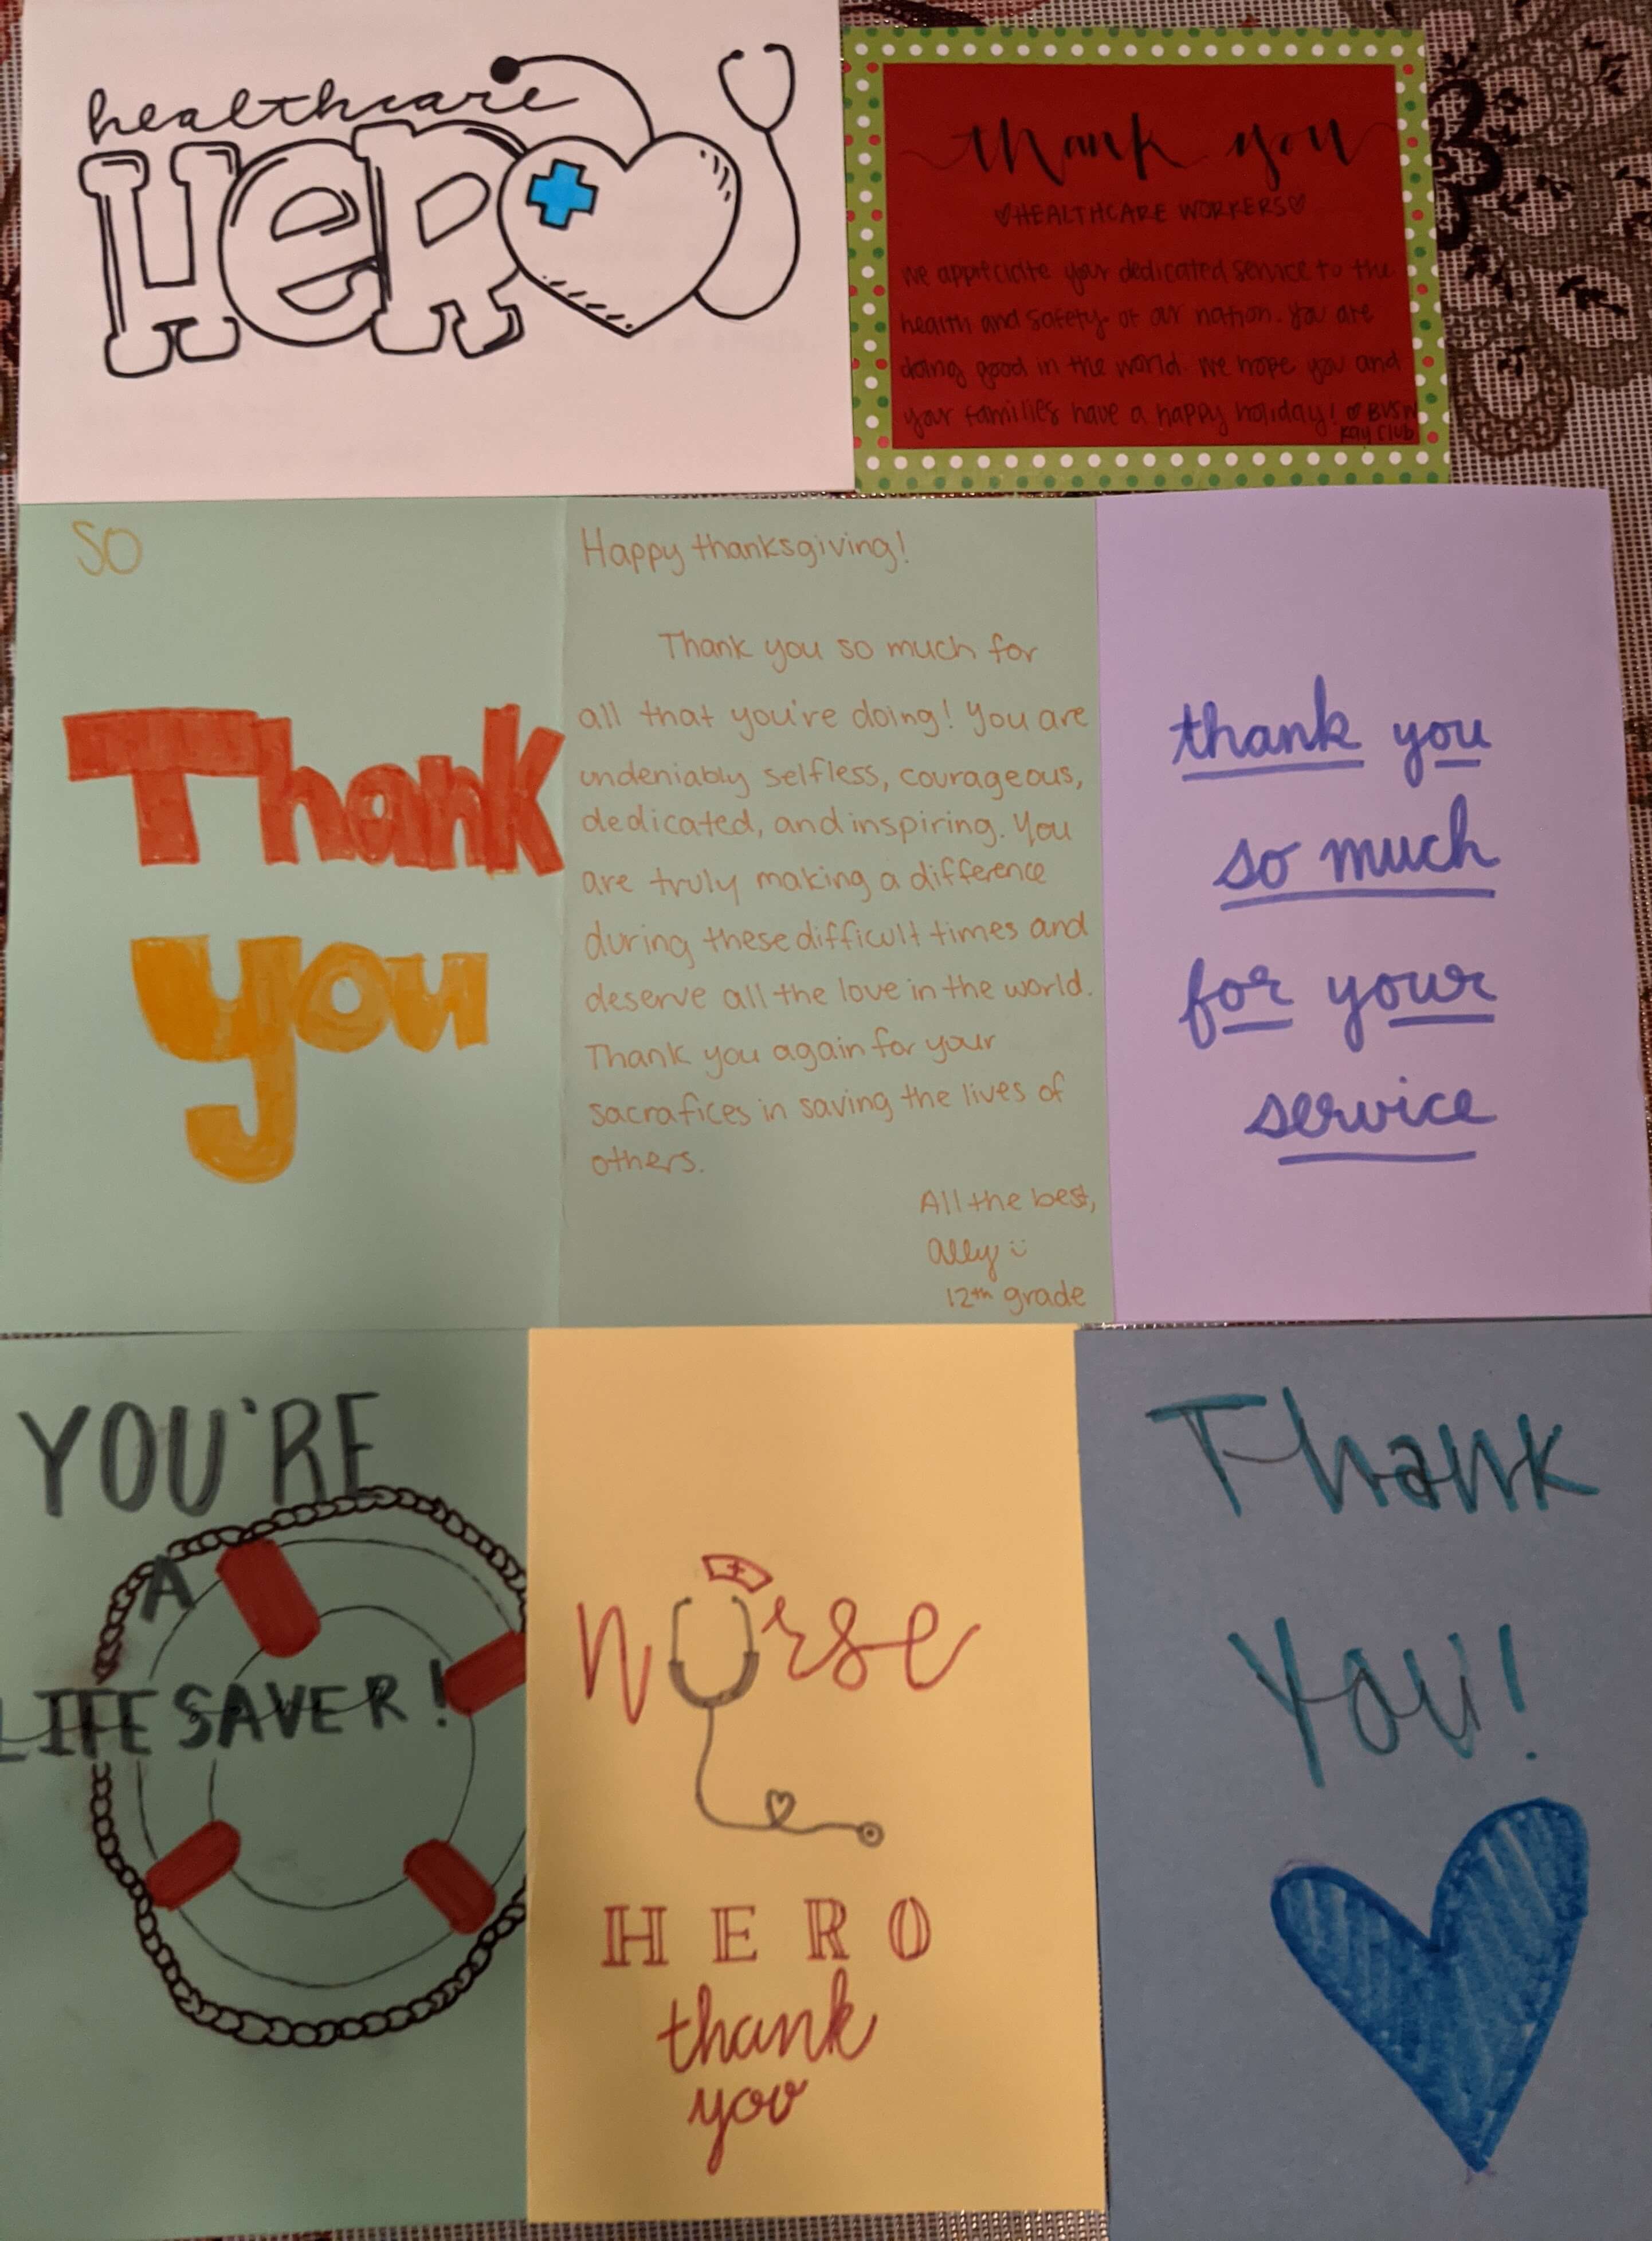 healthcare
HERO
thank you
♡HEALTHCARE WORKERS♡
We appreciate your dedicated service to the
health and safety of our nation. You are
doing good in the world. We hope you and
your families have a happy holiday! ♡ BVSW
Kay Club
SO
Thank
you
Happy thanksgiving!
Thank you so much for
all that you're doing! You are
undeniably selfless, courageous,
dedicated, and inspiring. You
are truly making a difference
during these difficult times and
deserve all the love in the world.
Thank you again for your
sacrafices in saving the lives of
others.
All the best,
Ally :)
12th grade
thank you
so much
for your
service
YOU'RE
A
LIFE SAVER!
nurse
HERO
thank
you
Thank
You!